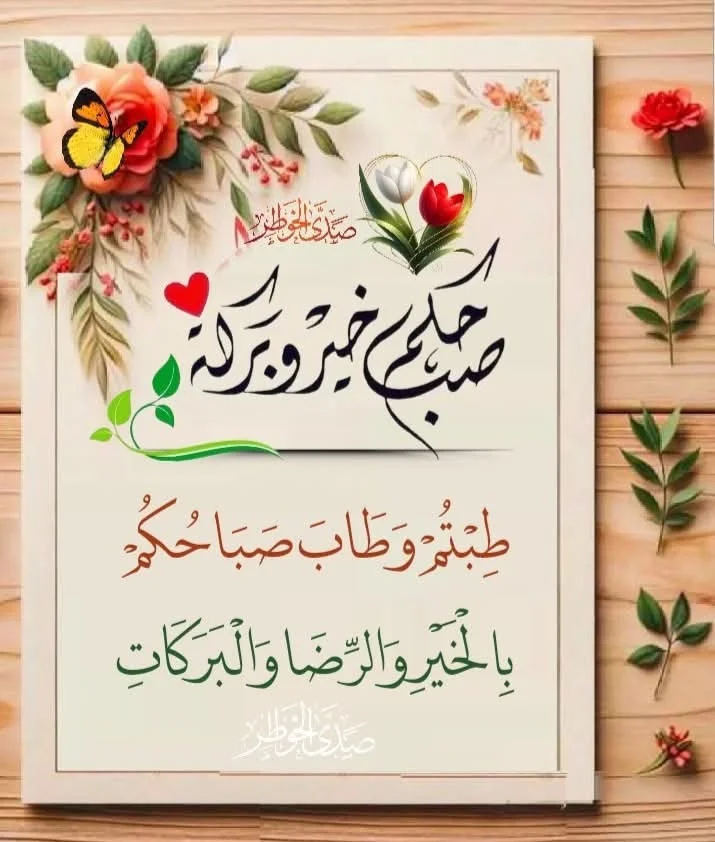 صَدَى الخَوَاطِر
صباحكم خير وبركة
طِبْتُمْ وَطَابَ صَبَاحُكُمْ
بِالْخَيْرِ وَالرِّضَا وَالْبَرَكَاتِ
صَدَى الخَوَاطِر